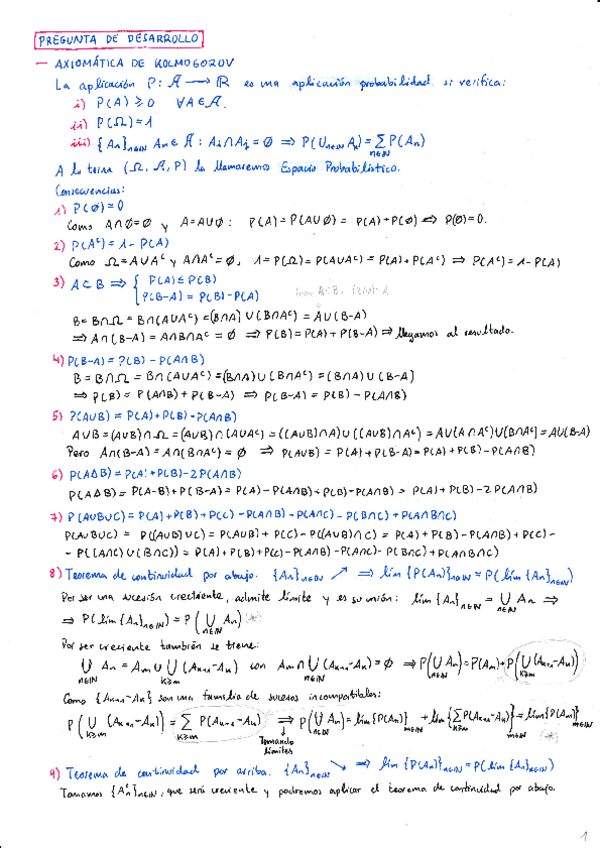 PREGUNTA DE DESARROLLO
— AXIOMÁTICA DE KOLMOGOROV
La aplicación P: A → ℝ es una aplicación probabilidad si verifica:
i) P(A) ≥ 0 ∀A∈A.
ii) P(Ω) = 1
iii) {An}n∈ℕ An∈A : Ai∩Aj = ∅ ⇒ P(∪n∈ℕ An) = Σn∈ℕ P(An)
A la terna (Ω, A, P) la llamaremos Espacio Probabilístico.
Consecuencias:
1) P(∅) = 0
Como A∩∅=∅ y A=A∪∅ : P(A) = P(A∪∅) = P(A)+P(∅) ⇔ P(∅)=0.
2) P(Aᶜ) = 1 - P(A)
Como Ω=A∪Aᶜ y A∩Aᶜ=∅, 1=P(Ω)=P(A∪Aᶜ)=P(A)+P(Aᶜ) ⇒ P(Aᶜ)=1-P(A)
3) A⊂B ⇒ { P(A) ≤ P(B)
P(B-A) = P(B)-P(A)
B = B∩Ω = B∩(A∪Aᶜ) = (B∩A)∪(B∩Aᶜ) = A∪(B-A)
⇒ A∩(B-A) = A∩B∩Aᶜ = ∅ ⇒ P(B)=P(A)+P(B-A) ⇒ llegamos al resultado.
4) P(B-A) = P(B) - P(A∩B)
B = B∩Ω = B∩(A∪Aᶜ) = (B∩A)∪(B∩Aᶜ) = (B∩A)∪(B-A)
⇒ P(B) = P(A∩B)+P(B-A) ⇒ P(B-A) = P(B) - P(A∩B)
5) P(A∪B) = P(A)+P(B)-P(A∩B)
A∪B=(A∪B)∩Ω=(A∪B)∩(A∪Aᶜ)=((A∪B)∩A)∪((A∪B)∩Aᶜ)=A∪(A∩Aᶜ)∪(B∩Aᶜ)=A∪(B-A)
Pero A∩(B-A) = A∩(B∩Aᶜ) = ∅ ⇒ P(A∪B) = P(A)+P(B-A)=P(A)+P(B)-P(A∩B)
6) P(AΔB) = P(A)+P(B)-2P(A∩B)
P(AΔB) = P(A-B)+P(B-A) = P(A)-P(A∩B)+P(B)-P(A∩B) = P(A)+P(B)-2P(A∩B)
7) P(A∪B∪C) = P(A)+P(B)+P(C)-P(A∩B)-P(A∩C)-P(B∩C)+P(A∩B∩C)
P(A∪B∪C) = P((A∪B)∪C) = P(A∪B)+P(C)-P((A∪B)∩C) = P(A)+P(B)-P(A∩B)+P(C)-
-P((A∩C)∪(B∩C)) = P(A)+P(B)+P(C)-P(A∩B)-P(A∩C)-P(B∩C)+P(A∩B∩C)
8) Teorema de continuidad por abajo. {An}n∈ℕ ↗ ⇒ lím {P(An)}n∈ℕ = P(lím {An}n∈ℕ)
Por ser una sucesión creciente, admite límite y es su unión: lím {An}n∈ℕ = ∪n∈ℕ An ⇒
⇒ P(lím {An}n∈ℕ) = P(∪n∈ℕ An) (*)
Por ser creciente también se tiene:
∪n∈ℕ An = Am ∪ ∪k≥m (Ak+1-Ak) con Am∩∪k≥m (Ak+1-Ak) = ∅ ⇒ P(∪n∈ℕ An) = P(Am)+P(∪k≥m (Ak+1-Ak))
Como {Ak+1-Ak} son una familia de sucesos incompatibles:
P(∪k≥m (Ak+1-Ak)) = Σk≥m P(Ak+1-Ak) ⇒ P(∪n∈ℕ An) = lím {P(Am)}m∈ℕ + lím {Σk≥m P(Ak+1-Ak)}m∈ℕ = lím {P(Am)}m∈ℕ
Tomando límites
(*)
9) Teorema de continuidad por arriba. {An}n∈ℕ ↘ ⇒ lím {P(An)}n∈ℕ = P(lím {An}n∈ℕ)
Tomamos {Aᶜn}n∈ℕ, que será creciente y podremos aplicar el teorema de continuidad por abajo.
1